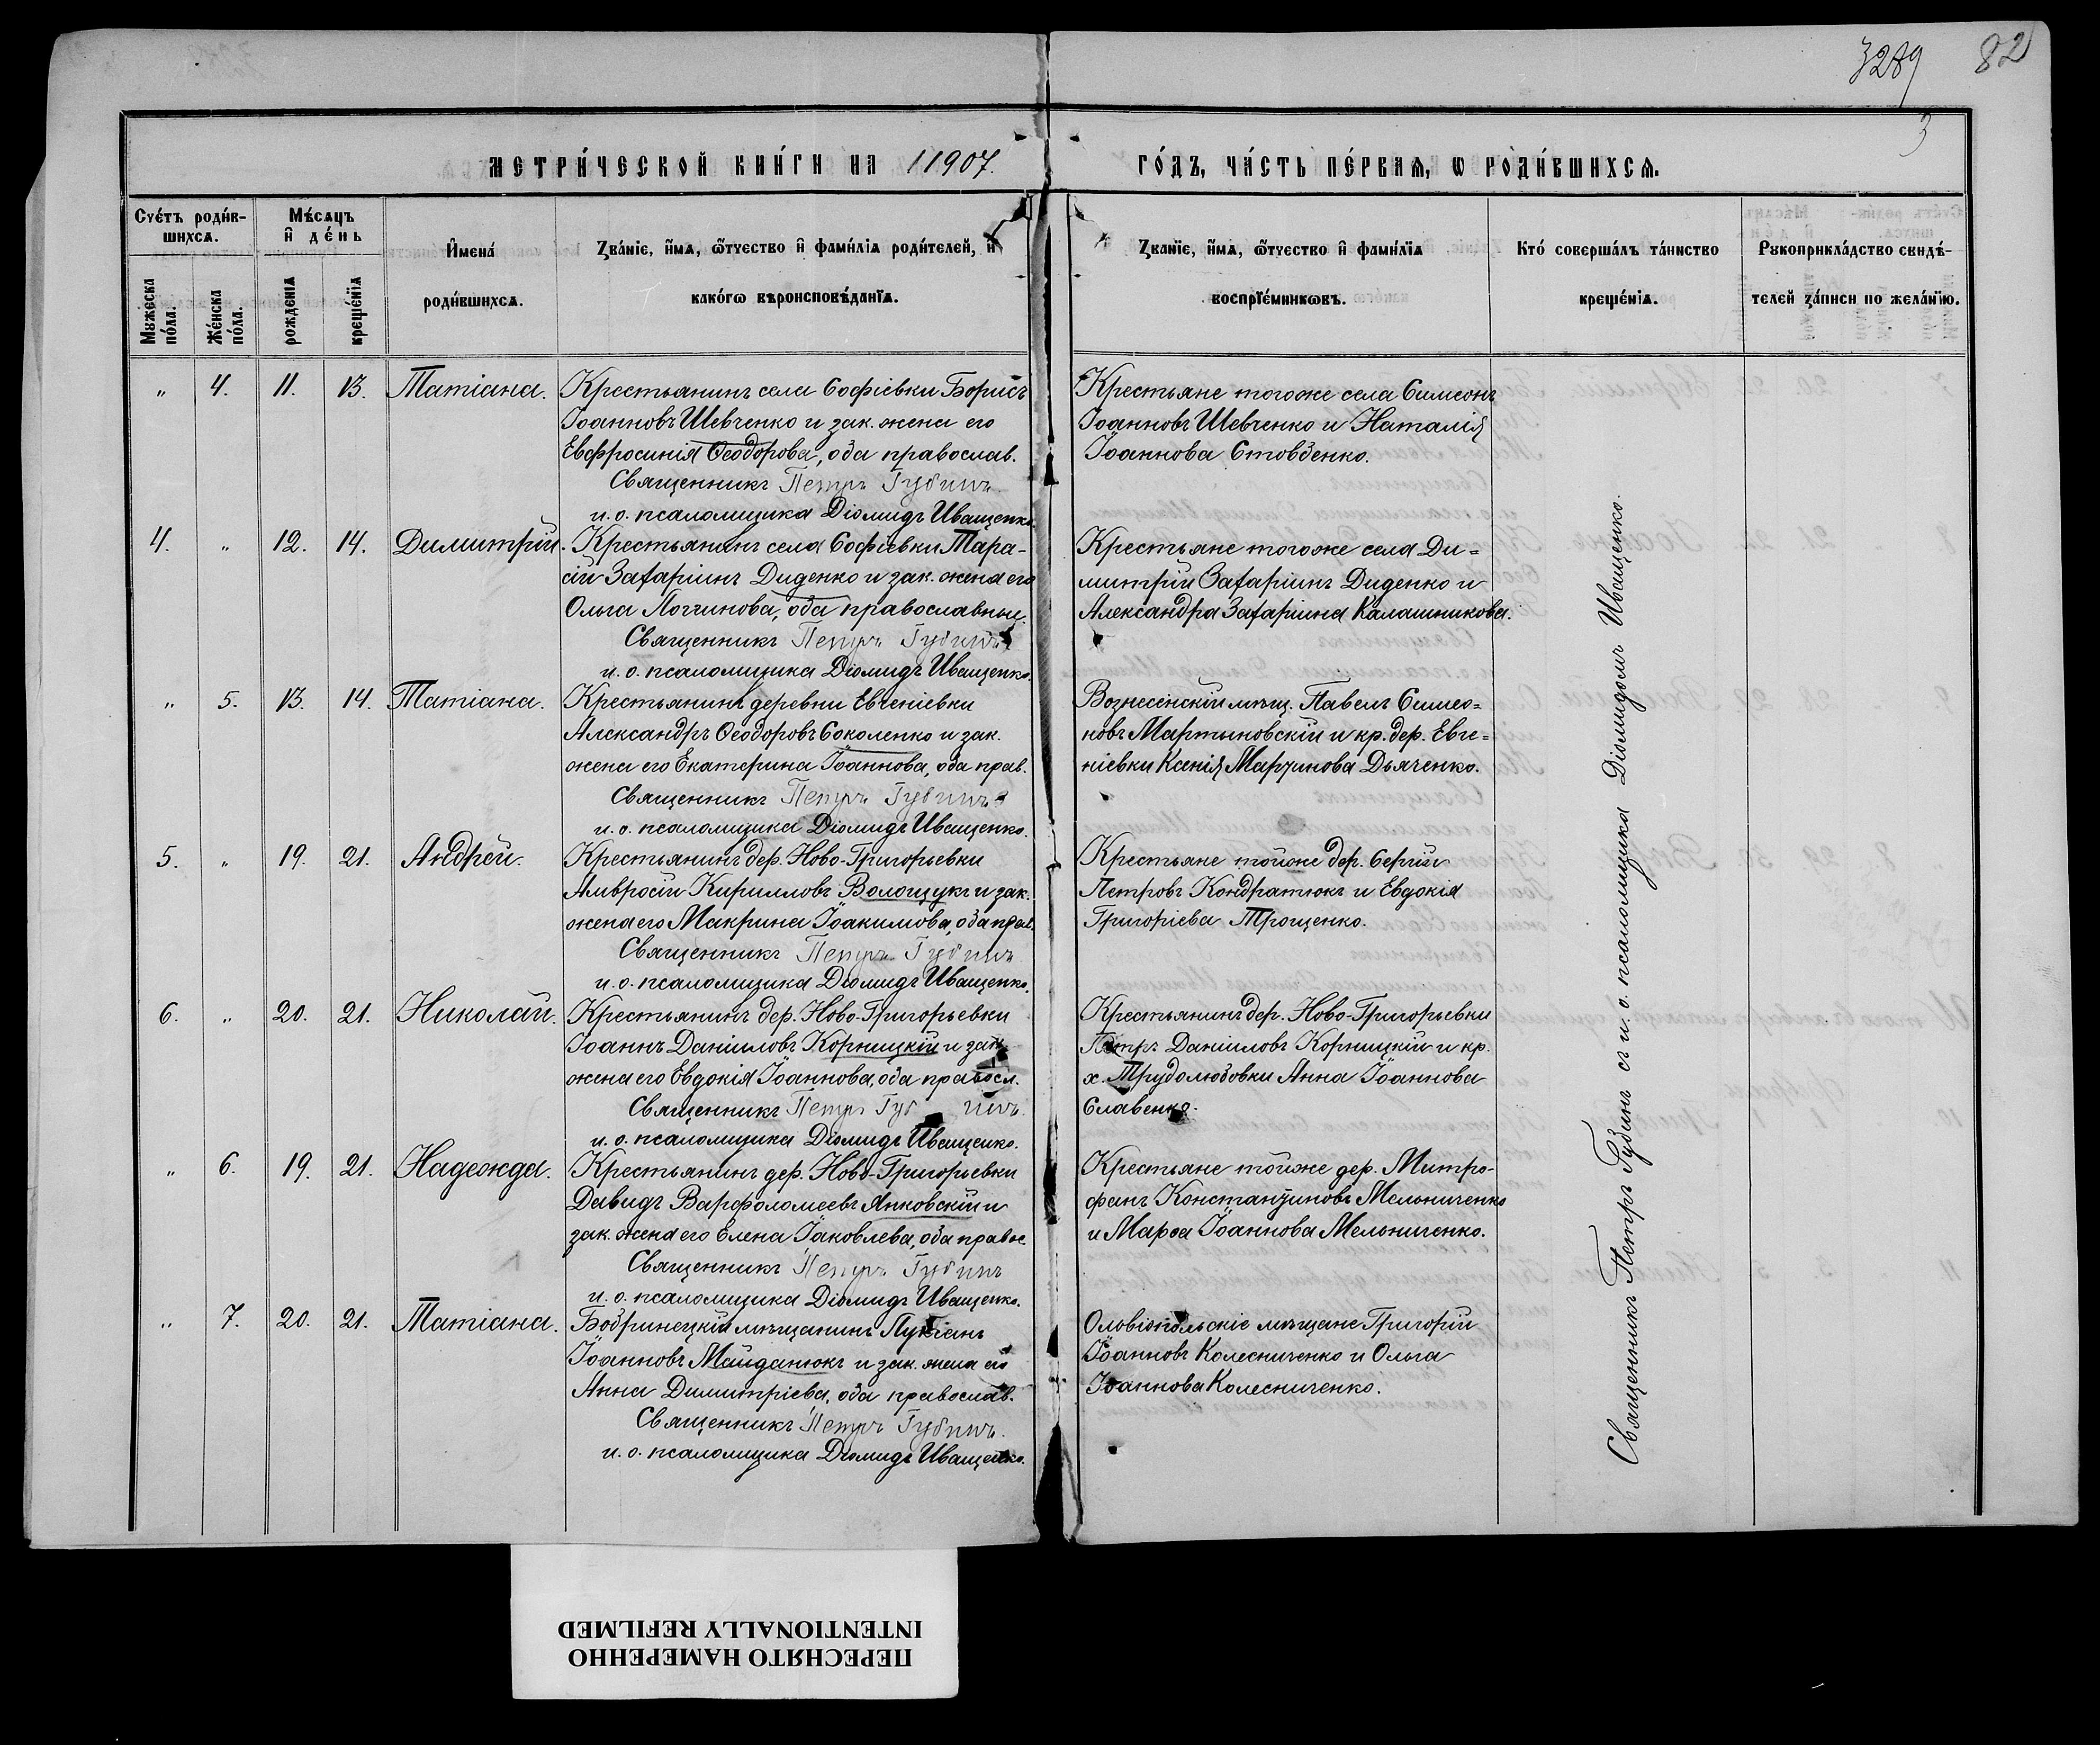 3289 82
3
МЕТРИ́ЧЕСКОЙ КНИ́ГИ НА 11907. ГО́ДЪ, ЧА́СТЬ ПЕ́РВАѦ, Ѡ РОДИ́ВШИХСѦ.
Сче́тъ роди́в-
шихсѧ.
Мѣ́сѧцъ
и҆ де́нь
И҆мена́
роди́вшихсѧ.
Зва́нїе, и҆́мѧ, ѻ҆́тчество и҆ фами́лїѧ роди́телей, и҆
како́гѡ вѣроисповѣ́данїѧ.
Зва́нїе, и҆́мѧ, ѻ҆́тчество и҆ фами́лїѧ
воспрїе́мникѡвъ.
Кто̀ соверша́лъ та́инство
креще́нїѧ.
Рꙋкоприкла́дство свидѣ́-
телей за́писи по жела́нїю.
Мꙋ́жеска
по́ла.
Же́нска
по́ла.
рожде́нїѧ
креще́нїѧ
„ 4. 11. 13. Татіана. Крестьянинъ села Софіевки Борисъ
Іоанновъ Шевченко и зак. жена его
Евфросинія Ѳеодорова, оба православ.
Священникъ Петръ Губинъ.
и. о. псаломщика Діомидъ Иващенко.
Крестьяне тогоже села Симеонъ
Іоанновъ Шевченко и Наталія
Іоаннова Стовбенко.
4. „ 12. 14. Димитрій. Крестьянинъ села Софіевки Тара-
сій Захаріинъ Диденко и зак. жена его
Ольга Логгинова, оба православные.
Священникъ Петръ Губинъ
и. о. псаломщика Діомидъ Иващенко.
Крестьяне тогоже села Ди-
митрій Захаріинъ Диденко и
Александра Захаріина Калашникова.
„ 5. 13. 14. Татіана. Крестьянинъ деревни Евгеніевки
Александръ Ѳеодоровъ Соколенко и зак.
жена его Екатерина Іоаннова, оба прав.
Священникъ Петръ Губинъ
и. о. псаломщика Діомидъ Иващенко.
Вознесенскій мѣщ. Павелъ Симео-
новъ Мартыновскій и кр. дер. Евге-
ніевки Ксенія Мартинова Дьяченко.
5. „ 19. 21. Андрей. Крестьянинъ дер. Ново-Григорьевки
Амвросій Кирилловъ Волощукъ и зак.
жена его Макрина Іоакимова, оба прав.
Священникъ Петръ Губинъ
и. о. псаломщика Діомидъ Иващенко.
Крестьяне тойже дер. Сергій
Петровъ Кондратюкъ и Евдокія
Григоріева Трощенко.
6. „ 20. 21. Николай. Крестьянинъ дер. Ново-Григорьевки
Іоаннъ Даніиловъ Корницкій и зак.
жена его Евдокія Іоаннова, оба правосл.
Священникъ Петръ Губинъ.
и. о. псаломщика Діомидъ Иващенко.
Крестьянинъ дер. Ново-Григорьевки
Петръ Даніиловъ Корницкій и кр.
х. Трудолюбовки Анна Іоаннова
Славенко.
„ 6. 19. 21. Надежда. Крестьянинъ дер. Ново-Григорьевки
Давидъ Варфоломеевъ Янковскій и
зак. жена его Елена Іаковлева, оба правос.
Священникъ Петръ Губинъ
и. о. псаломщика Діомидъ Иващенко.
Крестьяне тойже дер. Митро-
фанъ Константиновъ Мельниченко
и Марѳа Іоаннова Мельниченко.
„ 7. 20. 21. Татіана. Бобринецкій мѣщанинъ Лукіанъ
Іоанновъ Майданюкъ и зак. жена его
Анна Димитріева, оба православ.
Священникъ Петръ Губинъ.
и. о. псаломщика Діомидъ Иващенко.
Ольвіопольскіе мѣщане Григорій
Іоанновъ Колесниченко и Ольга
Іоаннова Колесниченко.
Священникъ Петръ Губинъ съ и. о. псаломщика Діомидомъ Иващенко.
ПЕРЕСНЯТО НАМЕРЕННО
INTENTIONALLY REFILMED